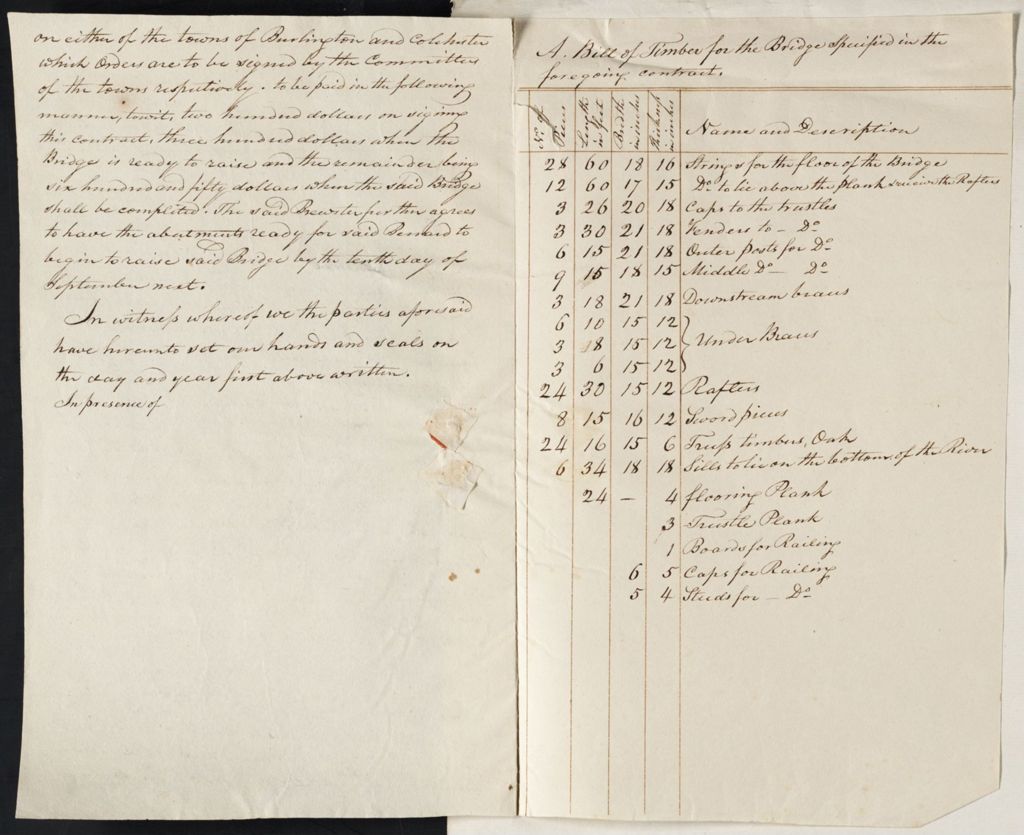 on either of the towns of Burlington and Colchester
which Orders are to be signed by the Committees
of the towns respectively. to be paid in the following
manner, towit, two hundred dollars on signing
this contract, three hundred dollars when the
Bridge is ready to raise and the remainder being
six hundred and fifty dollars when the said Bridge
shall be completed. The said Brewster further agrees
to have the abutments ready for said Pennard to
begin to raise said Bridge by the tenth day of
September next.
In witness whereof we the parties aforesaid
have hereunto set our hands and seals on
the day and year first above written.
In presence of
A. Bill of Timber for the Bridge Specified in the
foregoing contract.
No. of Pieces Length in feet Bredth in inches Thickness in inches Name and Description
28 60 18 16 Strings for the floor of the Bridge
12 60 17 15 Do. to lie above the plank & receive the Rafters
3 26 20 18 Caps to the trustles
3 30 21 18 Fenders to — Do
6 15 21 18 Outer posts for Do
9 15 18 15 Middle Do — Do
3 18 21 18 Downstream braces
6 10 15 12
3 18 15 12 Under Braces
3 6 15 12
24 30 15 12 Rafters
8 15 16 12 Sword pieces
24 16 15 6 Truss timbers, Oak
6 34 18 18 Sills to lie on the bottom of the River
24 — 4 flooring Plank
3 Trustle Plank
1 Boards for Railing
6 5 Caps for Railing
5 4 Studs for — Do